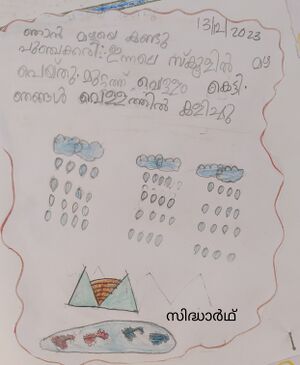 13/12/2023
ഞാൻ മഴയെ കണ്ടു
ഇന്നലെ സ്കൂളിൽ മഴ
പെയ്തു. മുറ്റത്ത് വെള്ളം കെട്ടി.
ഞങ്ങൾ വെള്ളത്തിൽ കളിച്ചു
സിദ്ധാർഥ്